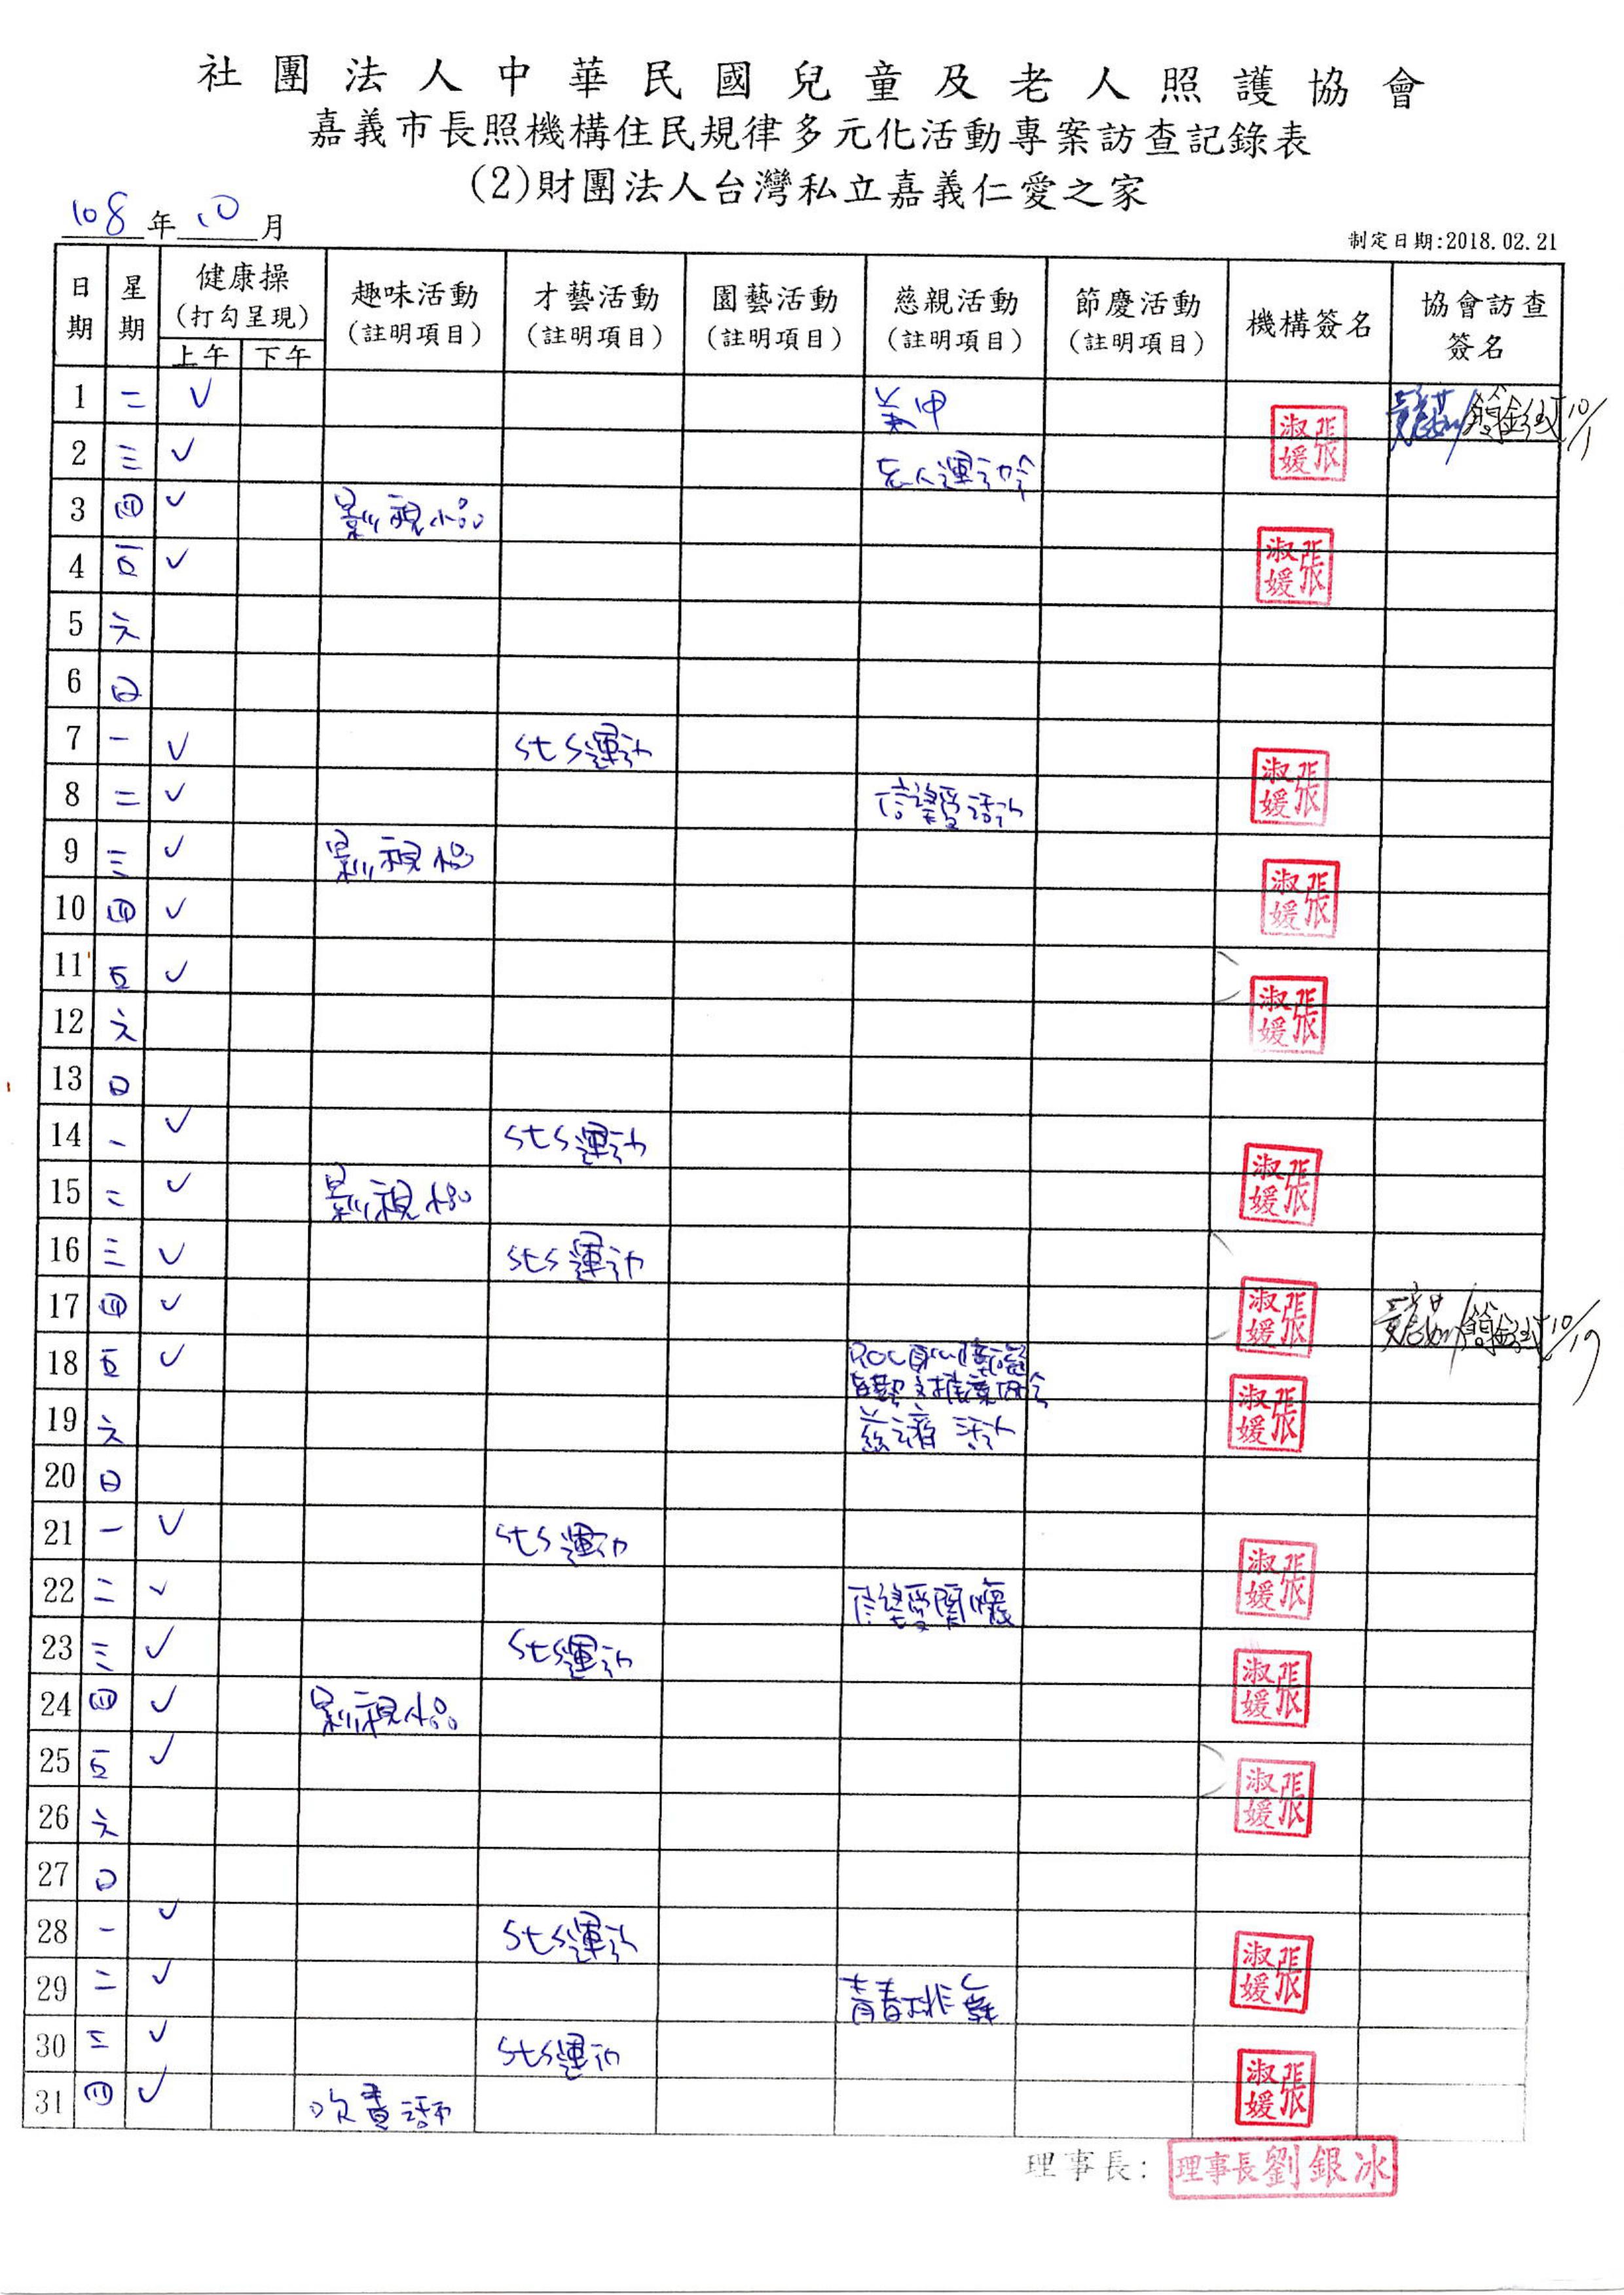 社團法人中華民國兒童及老人照護協會
嘉義市長照機構住民規律多元化活動專案訪查記錄表
(2)財團法人台灣私立嘉義仁愛之家
108年10月
制定日期:2018.02.21
日期 星期 健康操(打勾呈現) 上午 下午 趣味活動(註明項目) 才藝活動(註明項目) 園藝活動(註明項目) 慈親活動(註明項目) 節慶活動(註明項目) 機構簽名 協會訪查簽名
1 二 ✓ 美甲 張淑媛 10/1
2 三 ✓ 老人運動會
3 四 ✓ 影視小品
4 五 ✓ 張淑媛
5 六
6 日
7 一 ✓ sts運动
8 二 ✓ 信望愛活动 張淑媛
9 三 ✓ 影視小品
10 四 ✓ 張淑媛
11 五 ✓
12 六 張淑媛
13 日
14 一 ✓ sts運动
15 二 ✓ 影視小品 張淑媛
16 三 ✓ sts運动
17 四 ✓ 張淑媛 10/19
18 五 ✓
19 六 慈濟活动 張淑媛
20 日
21 一 ✓ sts運动
22 二 ✓ 信望愛關懷 張淑媛
23 三 ✓ sts運动
24 四 ✓ 影視小品 張淑媛
25 五 ✓ 張淑媛
26 六
27 日
28 一 ✓ sts運动
29 二 ✓ 青春排舞 張淑媛
30 三 ✓ sts運动
31 四 ✓ 張淑媛
理事長: 理事長劉銀冰